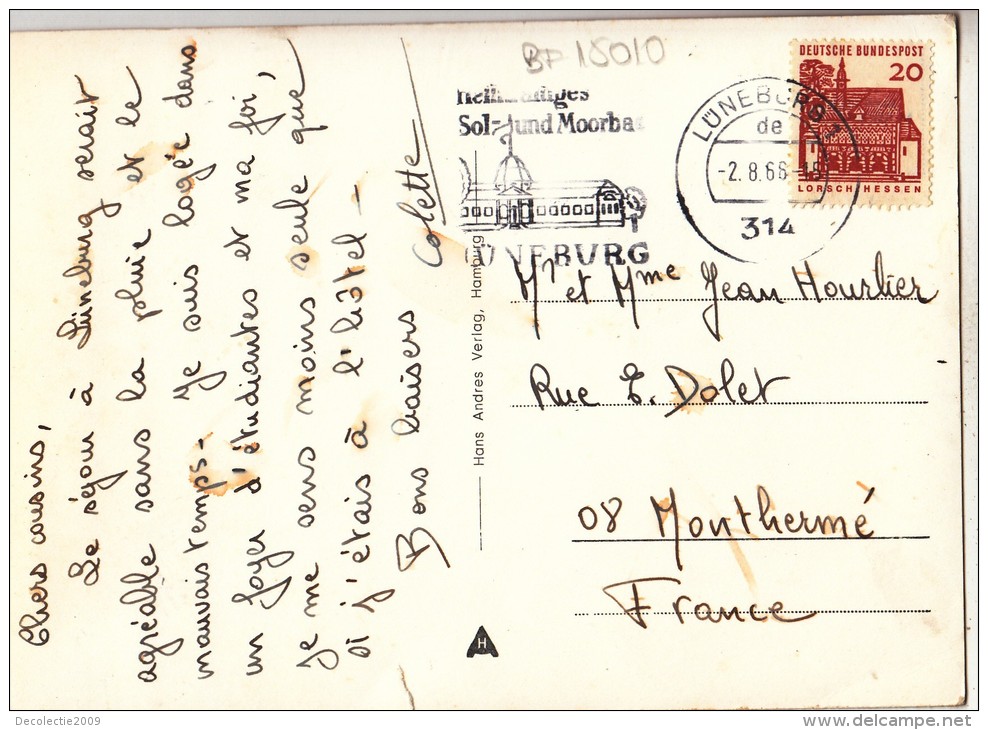 Chers cousins,
Le séjour à Lüneburg serait
agréable sans la pluie et le
mauvais temps - Je suis logée dans
un foyer d'étudiantes et ma foi,
je me sens moins seule que
si j'étais à l'hôtel -
Bons baisers
Colette
Hans Andres Verlag, Hamburg
H
BP 15010
Sol- und Moorba
LÜNEBURG
LÜNEBURG 1
de
-2.8.66-18
314
DEUTSCHE BUNDESPOST
20
LORSCH HESSEN
Mr et Mme Jean Hourlier
Rue E. Dolet
08 Monthermé
France
Decolectie2009
www.delcampe.net